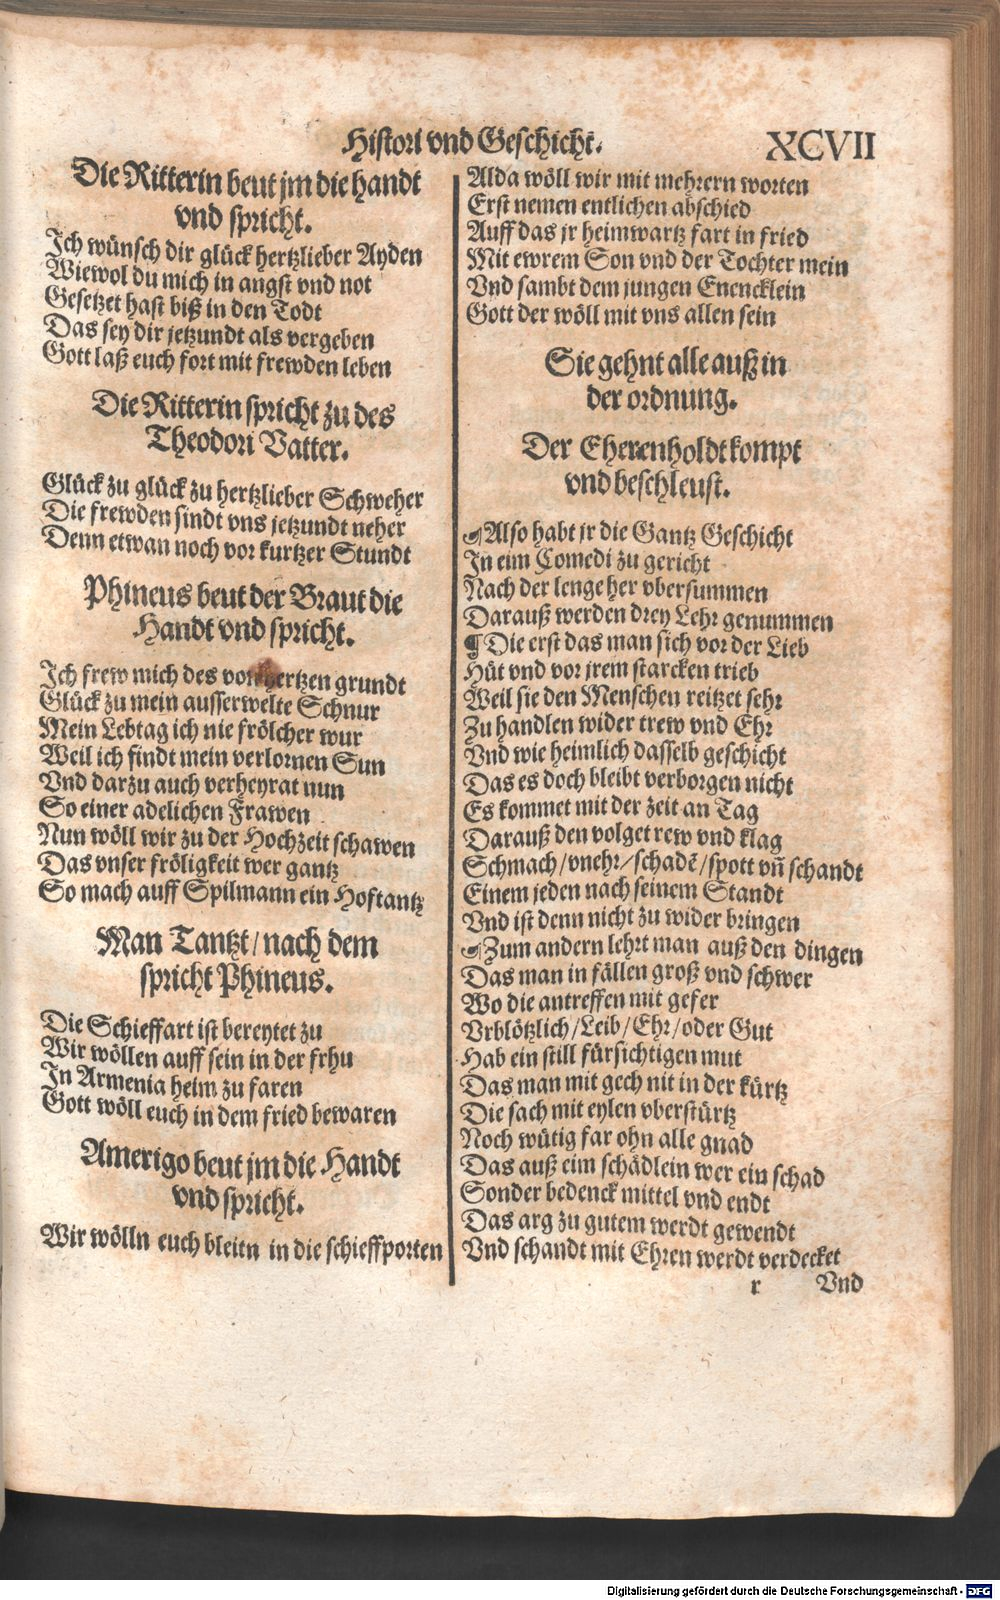 Histori vnd Geschicht.
XCVII
Die Ritterin beut jm die handt
vnd spricht.
Ich wünsch dir glück hertzlieber Ayden
Wiewol du mich in angst vnd not
Gesetzet hast biß in den Todt
Das sey dir jetzundt als vergeben
Gott laß euch fort mit frewden leben
Die Ritterin spricht zu des
Theodori Vatter.
Glück zu glück zu hertzlieber Schweher
Die frewden sindt vns jetzundt neher
Denn etwan noch vor kurtzer Stundt
Phineus beut der Braut die
Handt vnd spricht.
Ich frew mich des von hertzen grundt
Glück zu mein ausserwelte Schnur
Mein Lebtag ich nie frölcher wur
Weil ich findt mein verlornen Sun
Vnd darzu auch verheyrat nun
So einer adelichen Frawen
Nun wöll wir zu der Hochzeit schawen
Das vnser fröligkeit wer gantz
So mach auff Spilmann ein Hoftantz
Man Tantzt / nach dem
spricht Phineus.
Die Schieffart ist bereytet zu
Wir wöllen auff sein in der frhu
In Armenia heim zu faren
Gott wöll euch in dem fried bewaren
Amerigo beut jm die Handt
vnd spricht.
Wir wölln euch bleitn in die schieffporten
Alda wöll wir mit mehrern worten
Erst nemen entlichen abschied
Auff das jr heimwartz fart in fried
Mit ewrem Son vnd der Tochter mein
Vnd sambt dem jungen Enencklein
Gott der wöll mit vns allen sein
Sie gehnt alle auß in
der ordnung.
Der Eherenholdt kompt
vnd beschleust.
¶ Also habt jr die Gantz Geschicht
In eim Comedi zu gericht
Nach der lenge her vbersummen
Darauß werden drey Lehr genummen
¶ Die erst das man sich vor der Lieb
Hüt vnd vor jrem starcken trieb
Weil sie den Menschen reitzet sehr
Zu handlen wider trew vnd Ehr
Vnd wie heimlich dasselb geschicht
Das es doch bleibt verborgen nicht
Es kommet mit der zeit an Tag
Darauß den volget rew vnd klag
Schmach / vnehr / schadē / spott vn̄ schandt
Einem jeden nach seinem Standt
Vnd ist denn nicht zu wider bringen
¶ Zum andern lehrt man auß den dingen
Das man in fällen groß vnd schwer
Wo die antreffen mit gefer
Vrblötzlich / Leib / Ehr / oder Gut
Hab ein still fürsichtigen mut
Das man mit gech nit in der kürtz
Die sach mit eylen vberstürtz
Noch wütig far ohn alle gnad
Das auß eim schädlein wer ein schad
Sonder bedenck mittel vnd endt
Das arg zu gutem werdt gewendt
Vnd schandt mit Ehren werdt verdecket
r Vnd
Digitalisierung gefördert durch die Deutsche Forschungsgemeinschaft - DFG